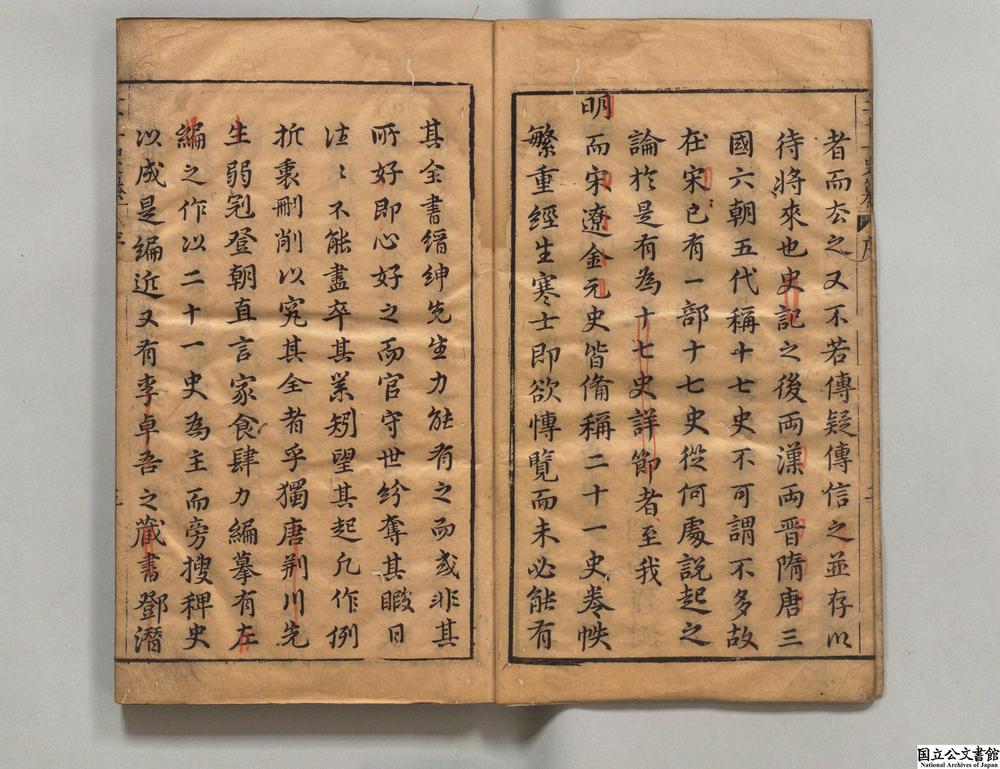 者而去之又不若傳疑傳信之並存以
待將來也史記之後両漢両晋隋唐三
國六朝五代稱十七史不可謂不多故
在宋已有一部十七史從何處說起之
論於是有為十七史詳節者至我
明而宋遼金元史皆備稱二十一史卷帙
繁重經生寒士即欲博覽而未必能有
其全書縉紳先生力能有之而或非其
所好即心好之而官守世紛奪其暇日
往〻不能盡卒其業矧望其起凡作例
折衷刪削以究其全者乎獨唐荊川先
生弱冠登朝直言家食肆力編摹有左
編之作以二十一史為主而旁搜稗史
以成是編近又有李卓吾之藏書鄧潛
国立公文書館
National Archives of Japan